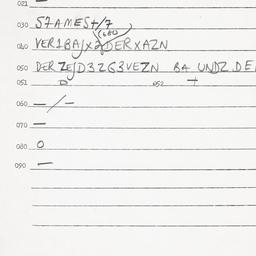 021 —
030 S7AMES+/7
(680)
040 VER1BAJX2DERXAZN
050 DERZEJD3Z63VEZN BA UNDZ.DE
051 0 052 +
060 — / —
070 —
080 0
090 —